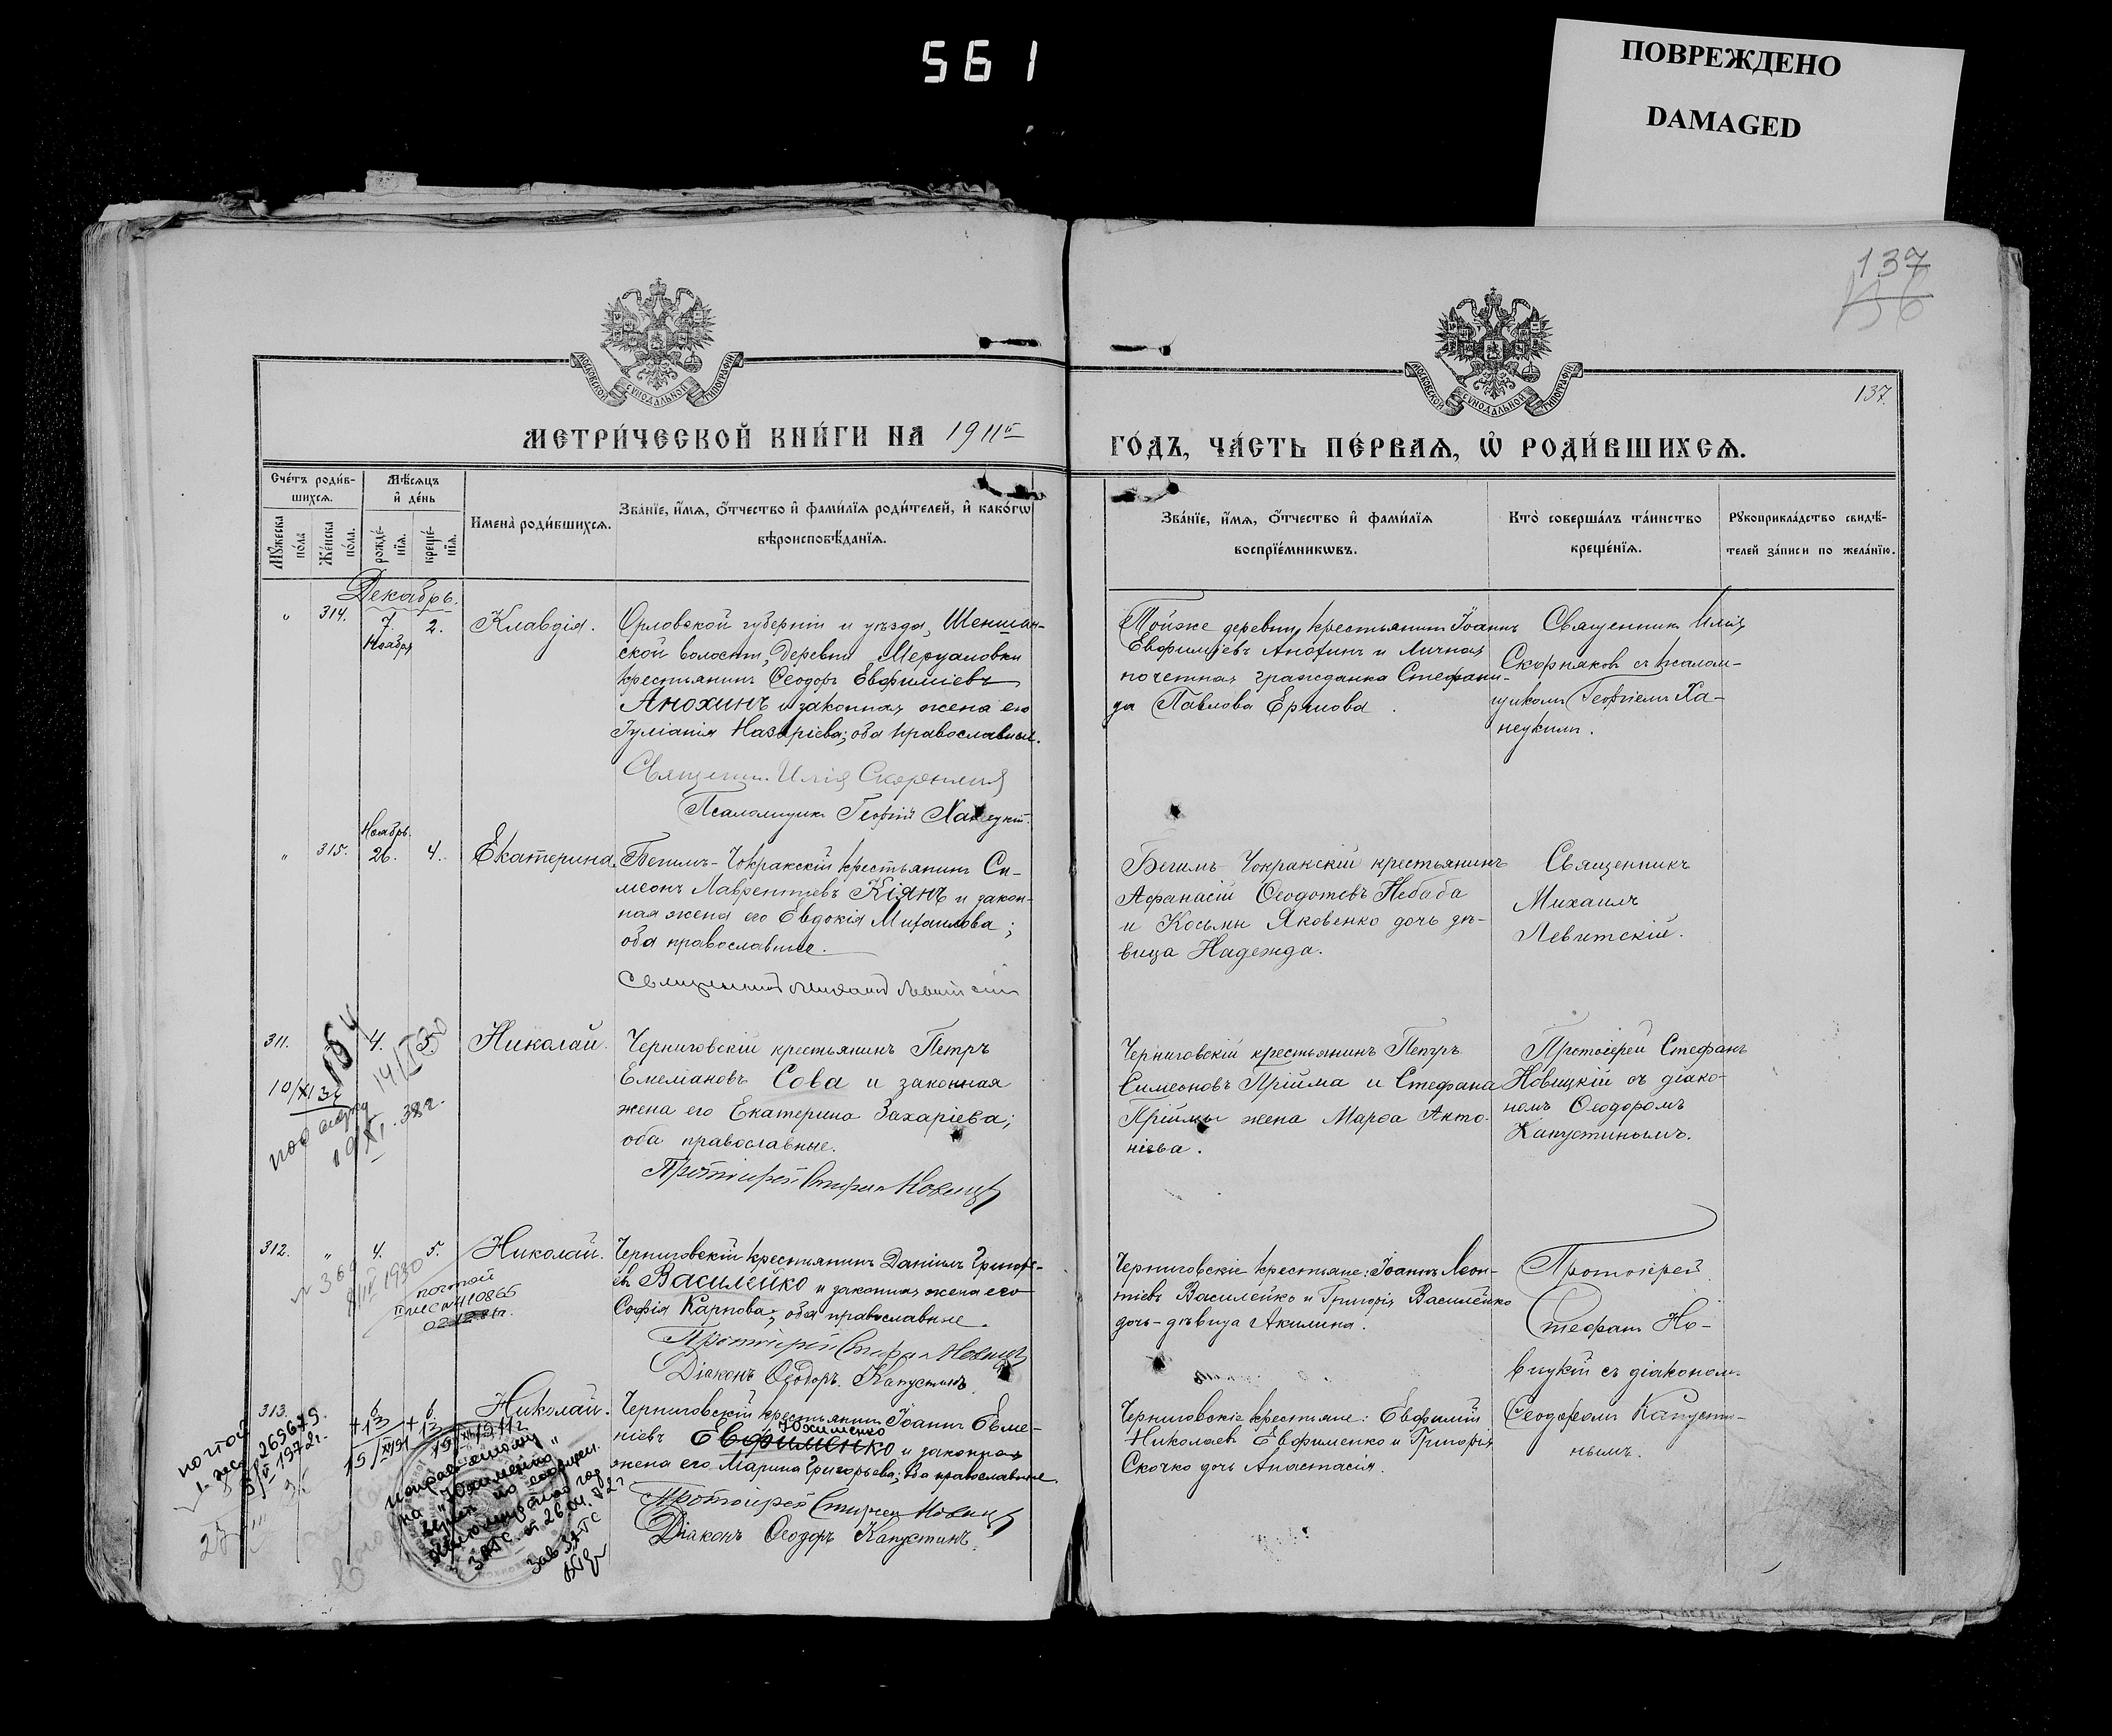 561
ПОВРЕЖДЕНО
DAMAGED
137
136
137.
МОСКОВСКОЙ СУНОДАЛЬНОЙ ТИПОГРАФІИ
МОСКОВСКОЙ СУНОДАЛЬНОЙ ТИПОГРАФІИ
МЕТРИ́ЧЕСКОЙ КНИ́ГИ НА 1911й
ГО́ДЪ, ЧА́СТЬ ПЕ́РВАѦ, Ѡ҆ РОДИ́ВШИХСѦ.
Сче́тъ роди́в-
шихсѧ.
Мꙋ́жеска по́ла
Же́нска по́ла.
Мѣ́сѧцъ
и҆ де́нь
рожде́-
нїѧ.
креще́-
нїѧ.
Имена̀ роди́вшихсѧ.
Зва́нїе, и҆́мѧ, ѻ҆́тчество и҆ фами́лїѧ роди́телей, и҆ како́гѡ
вѣроисповѣ́данїѧ.
Зва́нїе, и҆́мѧ, ѻ҆́тчество и҆ фами́лїѧ
воспрїе́мникѡвъ.
Кто̀ соверша́лъ та́инство
креще́нїѧ.
Рꙋкоприкла́дство свидѣ́-
телей за́писи по жела́нїю.
Декабрь.
" 314. 7 Ноября 2. Клавдія.
Орловской губерніи и уѣзда, Шеншин-
ской волости, деревни Мерцаловки
крестьянинъ Ѳеодоръ Евфиміевъ
Анохинъ и законная жена его
Іуліанія Назаріева; оба православные.
Священн. Илія Скорняковъ
Псаломщикъ Георгій Ханецкій.
Тойже деревни, крестьянинъ Іоаннъ
Евфиміевъ Анохинъ и Личная
почетная гражданка Стефани-
да Павлова Ермова.
Священникъ Илія
Скорняковъ съ псалом-
щикомъ Георгіемъ Ха-
нецкимъ.
" 315. Ноябрь. 26. 4. Екатерина.
Бегимъ-Чокракскій крестьянинъ Си-
меонъ Лаврентіевъ Кіянъ и закон-
ная жена его Евдокія Михаилова;
оба православные.
Священникъ Михаилъ Левитскій
Бегимъ-Чокракскій крестьянинъ
Афанасій Ѳеодотовъ Небаба
и Косьмы Яковенко дочь дѣ-
вица Надежда.
Священникъ
Михаилъ
Левитскій.
311. 4. 5. Николай.
Черниговскій крестьянинъ Петръ
Емеліановъ Сова и законная
жена его Екатерина Захаріева;
оба православные.
Протоіерей Стефанъ Новицкій
Черниговскій крестьянинъ Петръ
Симеоновъ Прійма и Стефана
Приймы жена Марѳа Анто-
ніева.
Протоіерей Стефанъ
Новицкій съ діако-
номъ Ѳеодоромъ
Капустинымъ.
312. " 4. 5. Николай.
Черниговскій крестьянинъ Даніилъ Григорь-
евъ Василейко и законная жена его
Софія Карпова; оба православные.
Протоіерей Стефанъ Новицкій
Діаконъ Ѳеодоръ Капустинъ.
Черниговскіе крестьяне: Іоаннъ Леон-
тіевъ Василейко и Григорія Василейко
дочь-дѣвица Акилина.
Протоіерей
Стефанъ Но-
вицкій съ діакономъ
Ѳеодоромъ Капусти-
нымъ.
почтой
02.12.81г.
313. 6 6 Николай.
Черниговскій крестьянинъ Іоаннъ Евме-
Юхименко
ніевъ Евфименко и законная
жена его Марина Григорьева; оба православные.
Протоіерей Стефанъ Новицкій
Діаконъ Ѳеодоръ Капустинъ.
Черниговскіе крестьяне: Евфимій
Николаевъ Евфименко и Григорія
Скочко дочь Анастасія.
почтой
269675
исправленному
на "Юхименко"
верить
ЗАГС от 26.04.72г
Зав ЗАГС